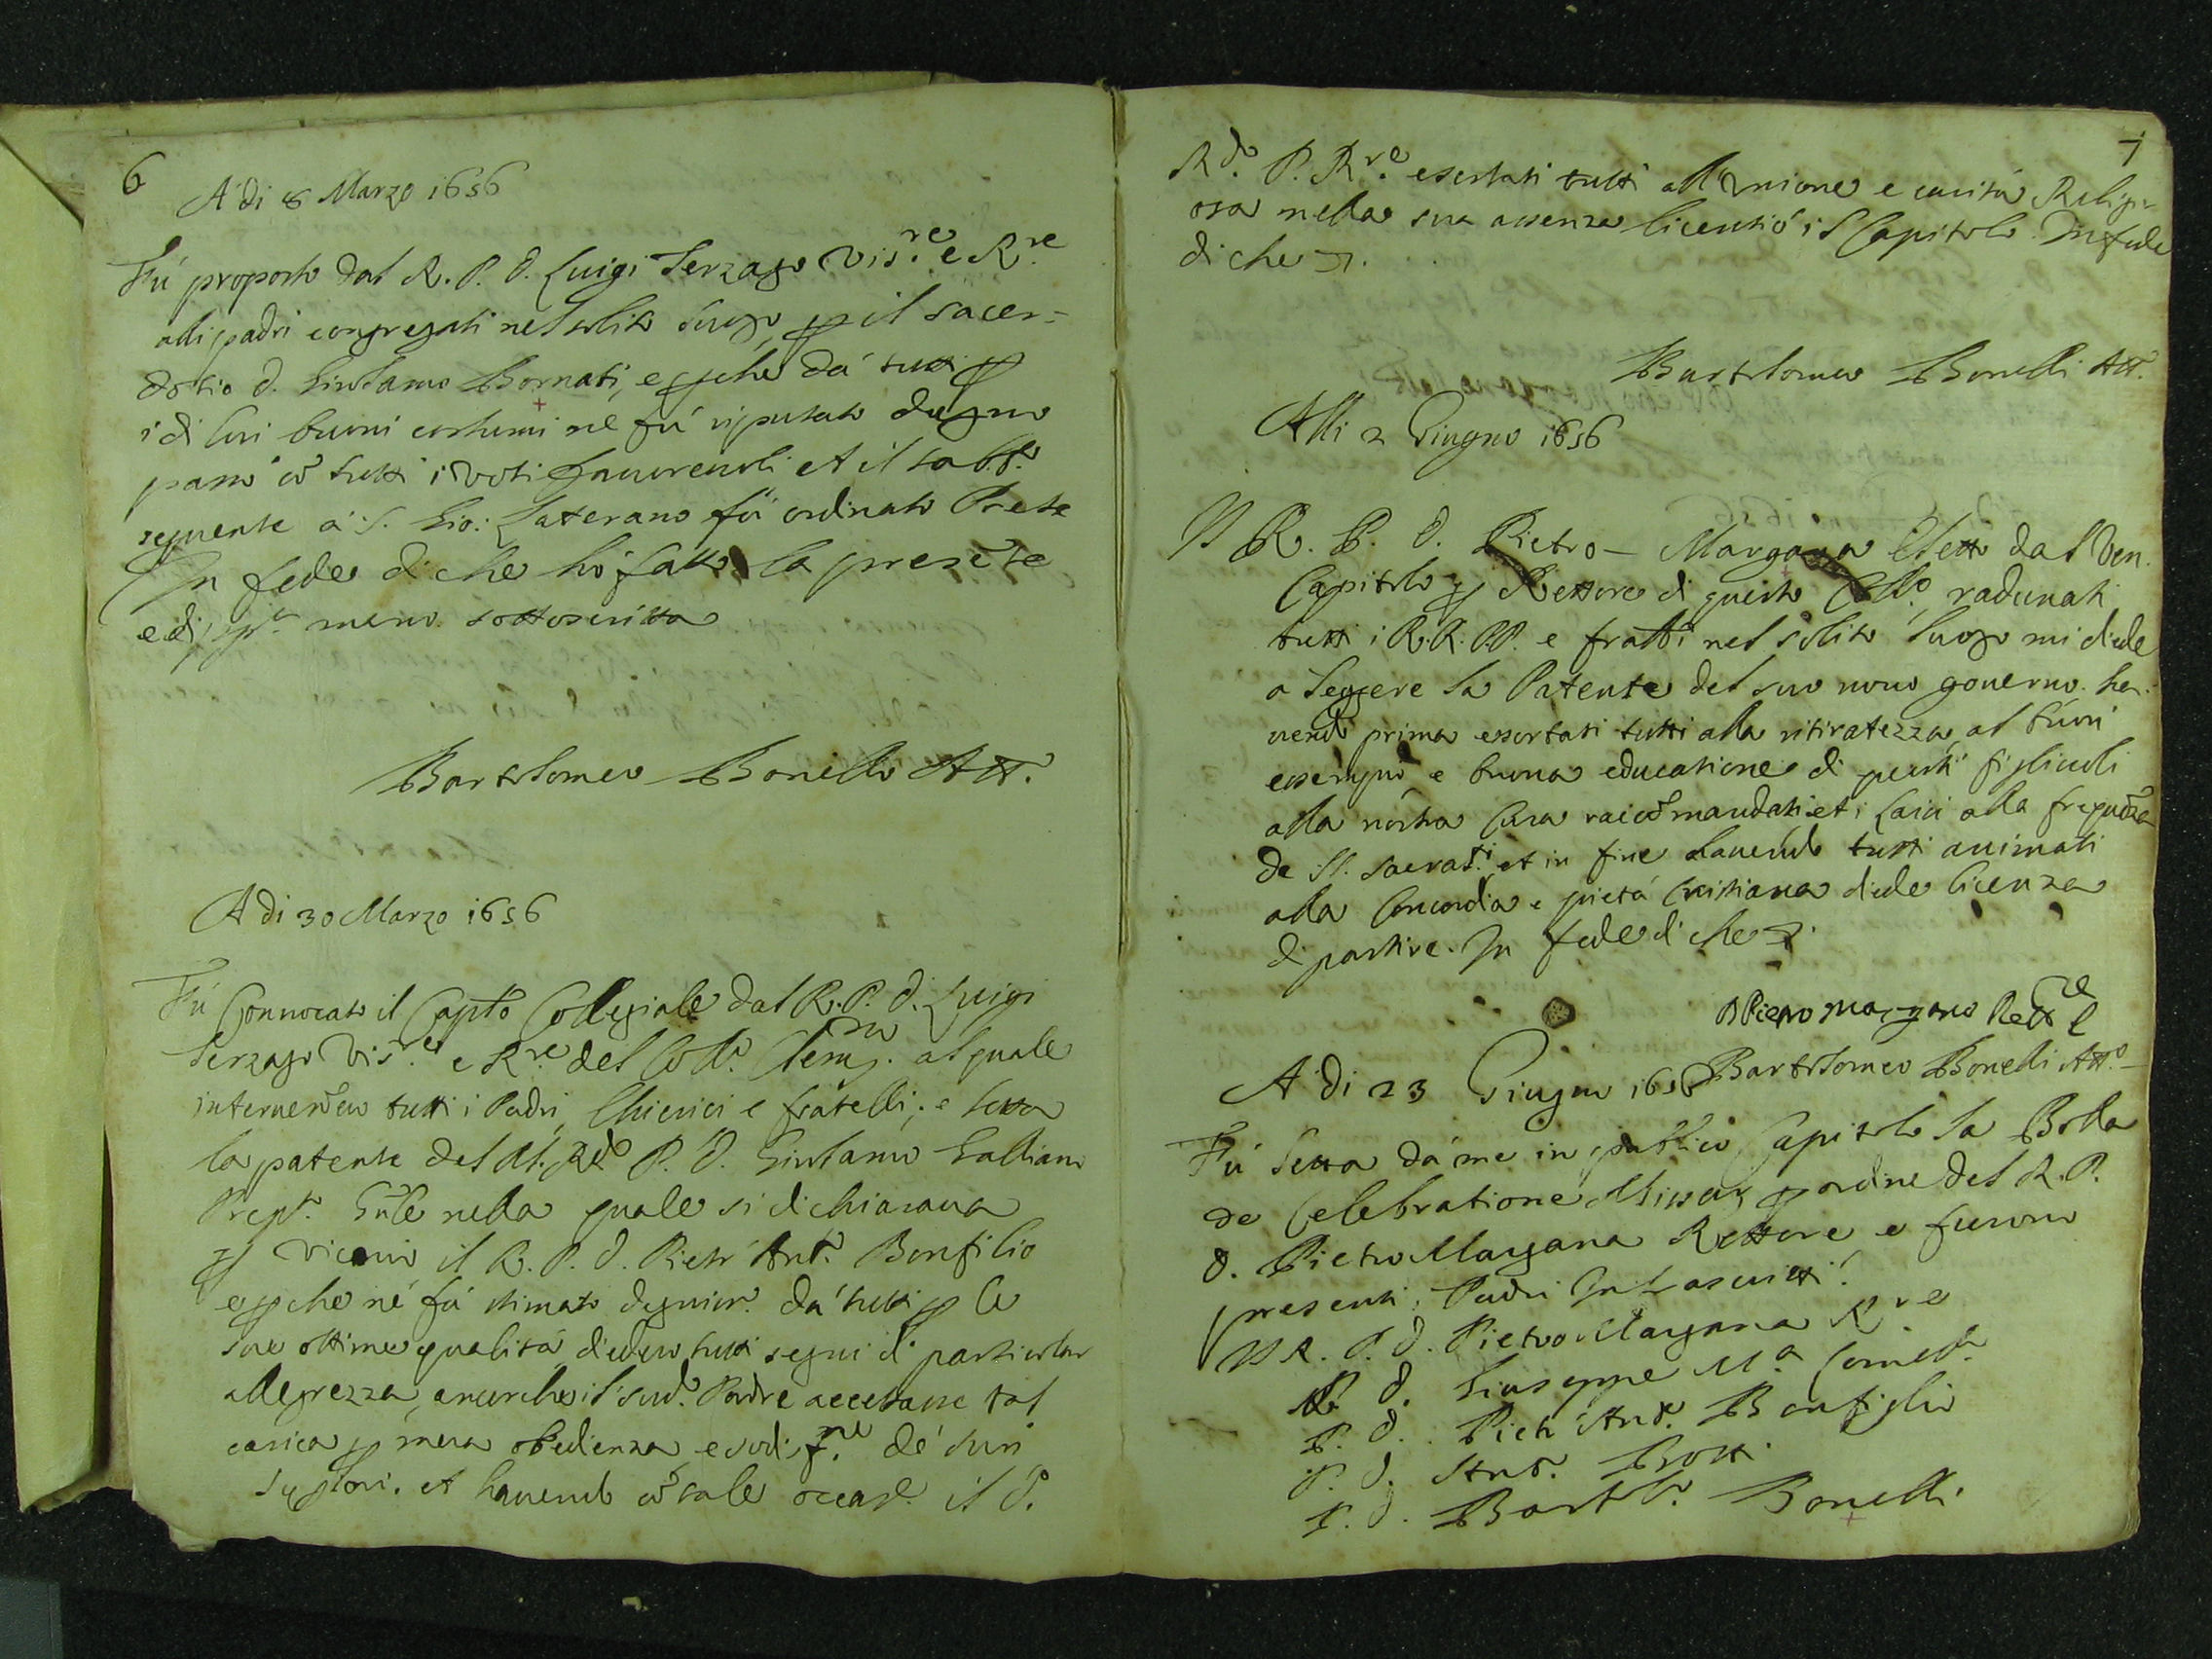 6
A' di 8 Marzo 1656
Fú proposto dal R. P. D. Luigi Terzago Vis.re e R.re
alli padri congregati nel solito luogo, p il sacer=
dotio D. Girolamo Bornati, e pche dá tutti p
i di lui buoni costumi ne fú riputato degno
passó có tutti i voti favorevoli et il sabb.o
seguente á S. Gio: Laterano fú ordinato Prete
In fede di che hó fatto la presẽte
e di pp.a mano sottoscritta
Bartolomeo Bonelli Att.
A di 30 Marzo 1656
Fú Connocato il Capto Collegiale dal R. P. D. Luigi
Terzago Vis.re e R.re del Coll.o Clem.no al quale
intervenero tutti i Padri, Chierici e fratelli, e letta
la patente del M. Rdo P. D. Girolamo Galliano
Prep.o Gñle nella quale si dichiarava
p Vicario il R. P. D. Pietr' Ant.o Bonfilio
e pche né fú stimato dignior. dá tutti p le
sue ottime qualitá diedero tutti segni di particolar
allegrezza, ancorche il sud.o Padre accettasse tal
carica p mera obedienza, e sodisf.ne dé suoi
Supiori. et havendo có tale occas.e il D.
7
Rdo. P. R.re esortati tutti all'Unione e caritá Religi=
osa nella sua assenza licentió il Capitolo. In fede
di che
Bartolomeo Bonelli Att.
Alli 2 Giugno 1656
Il R. P. D. Pietro - Margana Eletto dal Ven.
Capitolo p Rettore di questo Coll.o radunati
tutti i R.R. P.P. e fratti nel solito luogo mi diede
a leggere la Patente del suo novo governo. ha=
vendo prima essortati tutti alla ritiratezza, al buon
essempio e buona educatione di questi figliuoli
alla nostra Cura raccõmandati et i Laici alla frequẽza
de SS. Sacrati. et in fine havendo tutti animati
alla Concordia e pietá Cristiana diede licenza
di partire. In fede di che
D Pietro Margano Rett.re
A' di 23 Giugno 1656 Bartolomeo Bonelli Att.o
Fú letta dá me in publico Capitolo la Bolla
de Celebratione Missar p ordine del R. P.
D. Pietro Margana Rettore e furono
presenti i Padri Infrascritti.
Il R. P. D. Pietro Margana R.re
P. D. Giuseppe M.a
P. D. Pietr'Ant.o Bonfiglio
P. D. Ant.o
P. D. Bartol.o Bonelli